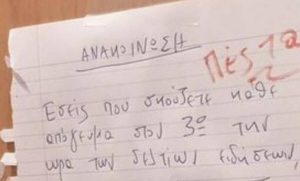 ΑΝΑΚΟΙΝΩΣΗ
Πές τα
Εσείς που σκούζετε κάθε
απόγευμα στον 3ο την
ώρα των δελτίων ειδήσεων